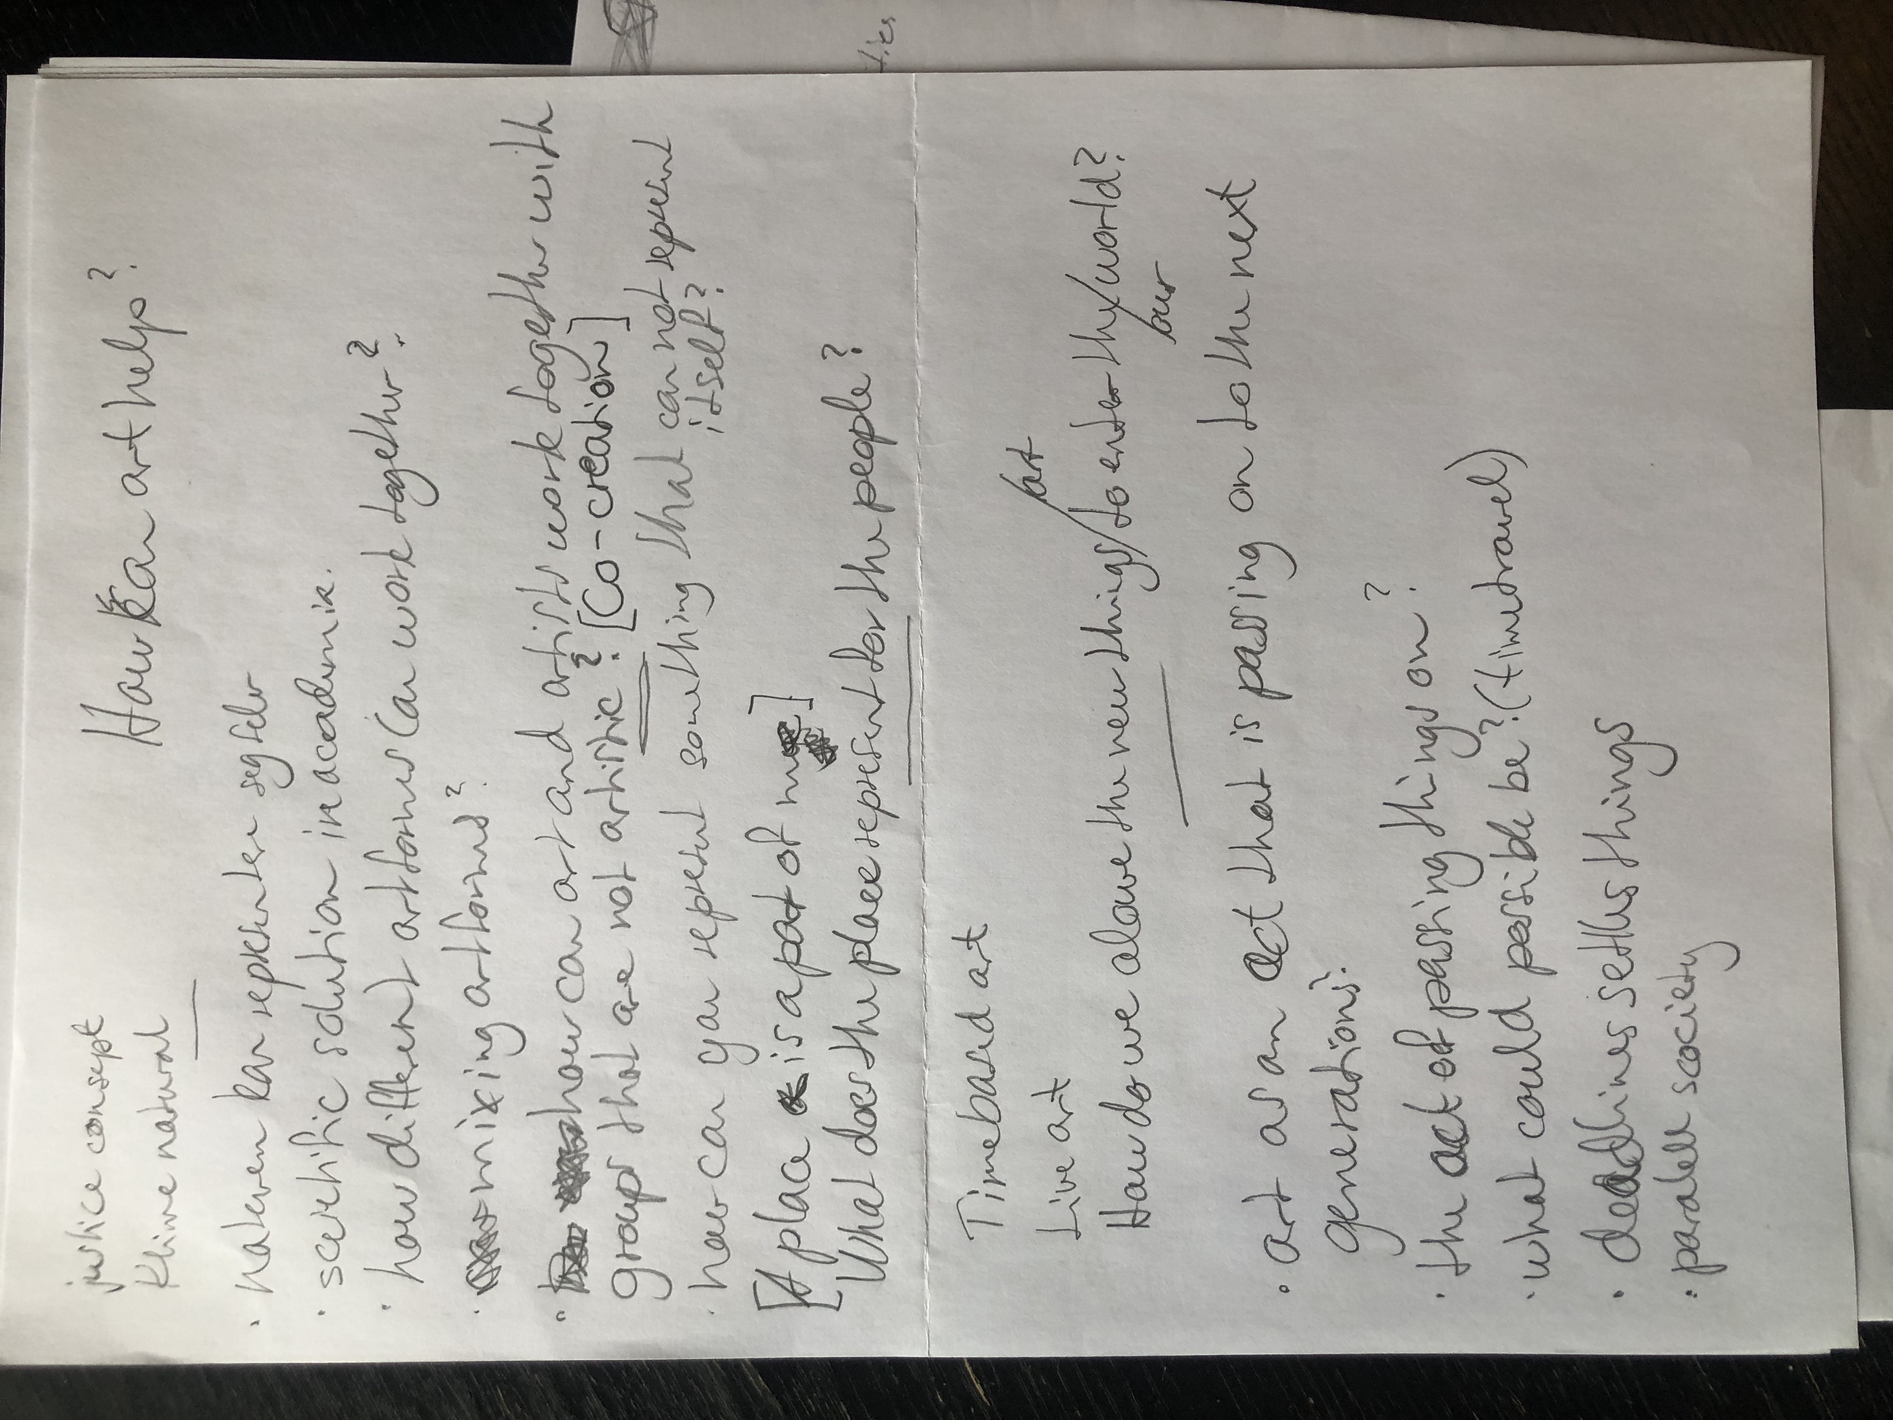 justice consept
Klima natural
How Kan art help?
· naturen kan representere seg selv
· scientific solution in academia.
· how different artforms can work together?
· mixing artforms?
· how can art and artists work together with
groups that are not artistic? [Co-creation]
· how can you represent something that can not represent
itself?
[A place is a part of me]
[What does the place represent for the people?
Timebased art
Live art
How do we alowe the new things/to enter the/world?
/art
/our
· art as an act that is passing on to the next
generations.
· the act of passing things on?
· what could possible be? (timetravel)
· deadlines settles things
· paralell society
ties